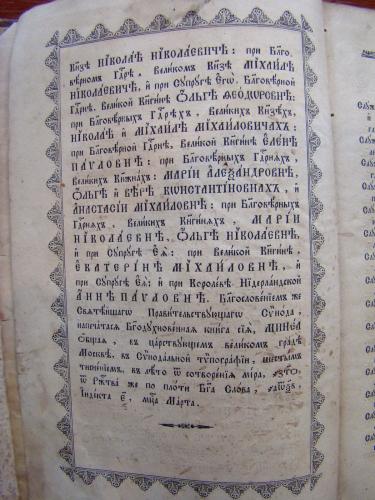 Кн҃зѣ НІКОЛАѢ НІКОЛАЕВИЧѢ: при Бл҃го-
вѣрномъ Гдⷭ҇рѣ, Великомъ Кн҃зѣ МІХАИЛѢ
НІКОЛАЕВИЧѢ, и҆ при Сꙋпрꙋгѣ Є҆гѡ̀, Бл҃говѣрной
Гдⷭ҇рнѣ, Великой Кн҃гинѣ Ѻ҆ЛЬГѢ ѲЕОДѠРОВНѢ:
при Бл҃говѣрныхъ Гдⷭ҇рѣхъ, Великихъ Кн҃зѣхъ,
НІКОЛАѢ и҆ МІХАИЛѢ МІХАИЛОВИЧАХЪ:
при Бл҃говѣрной Гдⷭ҇рнѣ, Великой Кн҃гинѣ ЕЛЕНѢ
ПАѴЛОВНѢ: при Бл҃говѣрныхъ Гдⷭ҇рняхъ,
Великихъ Кн҃жнахъ: МАРІИ АЛЕѮАНДРОВНѢ,
Ѻ҆ЛЬГѢ и҆ ВѢРѢ КѠНСТАНТІНОВНАХЪ, и҆
АНАСТАСІИ МІХАИЛОВНѢ: при Бл҃говѣрныхъ
Гдⷭ҇рняхъ, Великихъ Кн҃гиняхъ, МАРІИ
НІКОЛАЕВНѢ, Ѻ҆ЛЬГѢ НІКОЛАЕВНѢ,
и҆ при Сꙋпрꙋгѣ Є҆ѧ̀: при Великой Кн҃гинѣ,
ЕКАТЕРІНѢ МІХАИЛОВНѢ, и҆
при Сꙋпрꙋгѣ Є҆ѧ̀: и҆ при Королевѣ Нідерландской
АННѢ ПАѴЛОВНѢ. Бл҃гословеніемъ же
Свѧтѣйшагѡ Правительствꙋющагѡ Сѷнода
напечатасѧ Бг҃одꙋхновеннаѧ книга сіѧ, МИНЕА
Ѻ҆бщаѧ, въ царствꙋющемъ великомъ градѣ
Москвѣ, въ Сѷнодальной тѷпографіи, шестымъ
тисненіемъ, въ лѣто ѿ сотворенія міра,
ѿ Рж҃тва же по плоти Бг҃а Слова,
І҆ндікта є҃, мц҃а Марта.